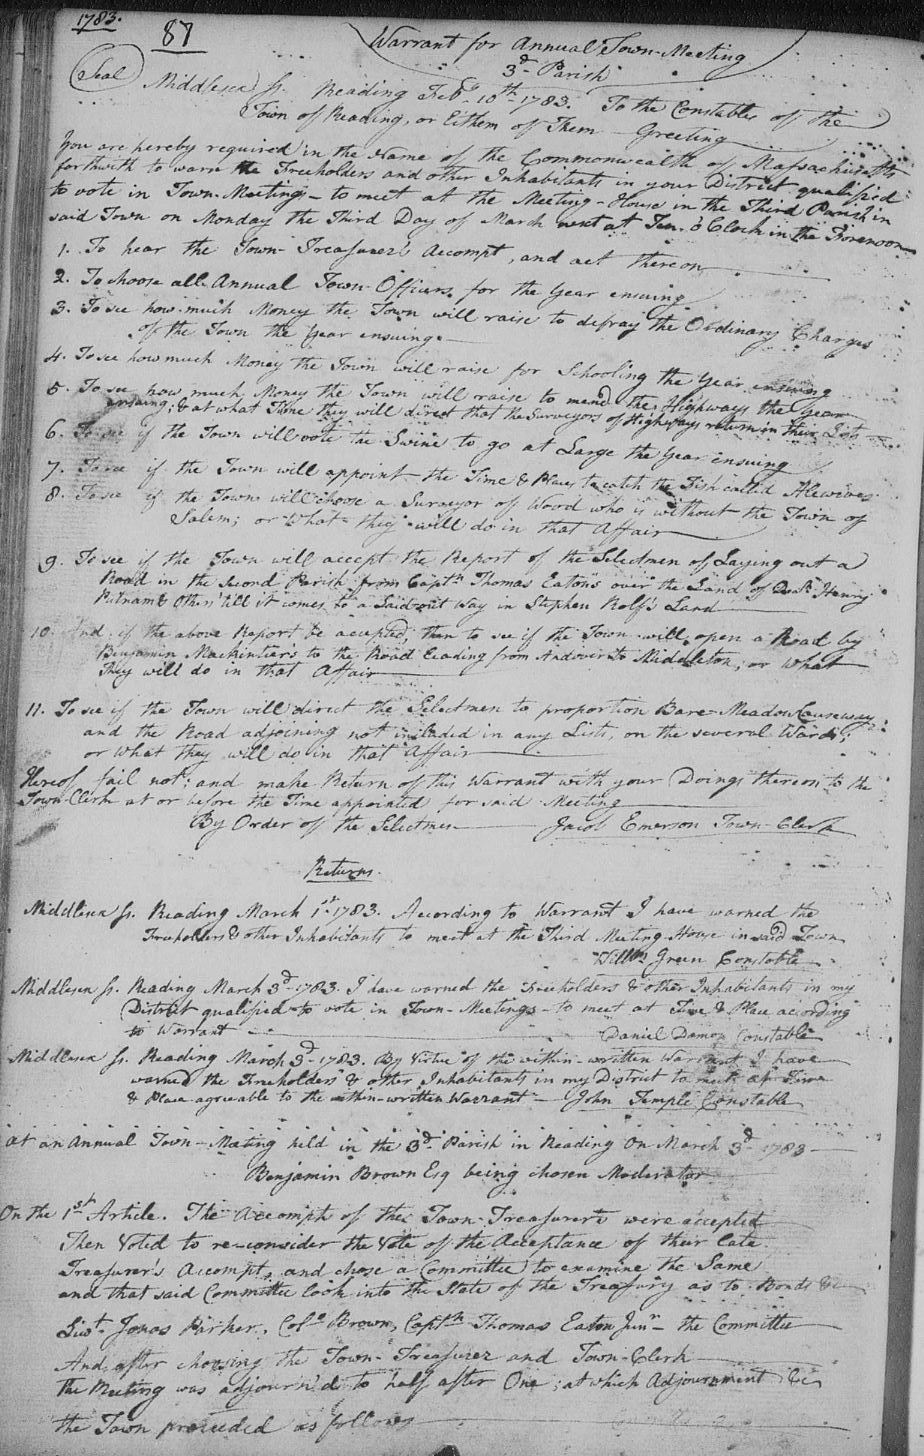 1783.
87
Warrant for Annual Town-Meeting
3d Parish
Seal
Middlesex Ss. Reading Feby 10th 1783. To the Constables of the
Town of Reading, or Eithem of Them Greeting
You are hereby required in the Name of the Commonwealth of Massachusetts
forthwith to warn the Freeholders and other Inhabitants in your District qualified
to vote in Town-Meetings - to meet at the Meeting-House in the Third Parish in
said Town on Monday the Third Day of March next at Ten o'Clock in the Forenoon
1. To hear the Town-Treasurer's Accompt, and act thereon
2. To choose all Annual Town-Officers for the Year ensuing
3. To see how much Money the Town will raise to defray the Ordinary Charges
of the Town the Year ensuing.
4. To see how much Money the Town will raise for Schooling the Year ensuing
5. To see how much Money the Town will raise to mend the Highways the Year
ensuing; & at what Time they will direct that the Surveyors of Highways return in their Lists
6. To see if the Town will vote the Swine to go at Large the Year ensuing
7. To see if the Town will appoint the Time & Place to catch the Fish called Alewives
8. To see if the Town will choose a Surveyor of Wood who is without the Town of
Salem; or What they will do in that Affair
9. To see if the Town will accept the Report of the Selectmen of Laying out a
Road in the Second Parish from Captn Thomas Eaton's over the Land of Deacn Henry
Putnam & Others till it comes to a Laid-out Way in Stephen Rolf's Land
10. And if the above Report be accepted, then to see if the Town will open a Road by
Benjamin Mackintier's to the Road leading from Andover to Middleton; or What
They will do in that Affair
11. To see if the Town will direct the Selectmen to proportion Bare-Meadow Causeway
and the Road adjoining not included in any Lists, on the several Wards;
or What they will do in that Affair
Hereof fail not; and make Return of this Warrant with your Doings thereon to the
Town-Clerk at or before the Time appointed for said Meeting
By Order of the Selectmen Jacob Emerson Town-Clerk
Returns.
Middlesex Ss. Reading March 1st 1783. According to Warrant I have warned the
Freeholders & other Inhabitants to meet at the Third Meeting-House in said Town
Willm Green Constable
Middlesex Ss. Reading March 3d 1783. I have warned the Freeholders & other Inhabitants in my
District qualified to vote in Town-Meetings - to meet at Time & Place according
to Warrant Daniel Damon Constable
Middlesex Ss. Reading March 3d 1783. By Virtue of the within-written Warrant I have
warned the Freeholders & other Inhabitants in my District to meet at Time
& Place agreeable to the within-written Warrant - John Temple Constable
At an Annual Town-Meeting held in the 3d Parish in Reading On March 3d 1783
Benjamin Brown Esq being chosen Moderator
On the 1st Article. The Accompts of the Town-Treasurer were accepted
Then Voted to re-consider the Vote of the Acceptance of their late
Treasurer's Accompt, and chose a Committee to examine the Same
and that said Committee look into the State of the Treasury as to Bonds &c
Liut Jonas Parker, Coll Brown, Captn Thomas Eaton Junr - the Committee
And after choosing the Town-Treasurer and Town-Clerk
the Meeting was adjourn'd to half after One; at which Adjournment &c
the Town proceeded as follows